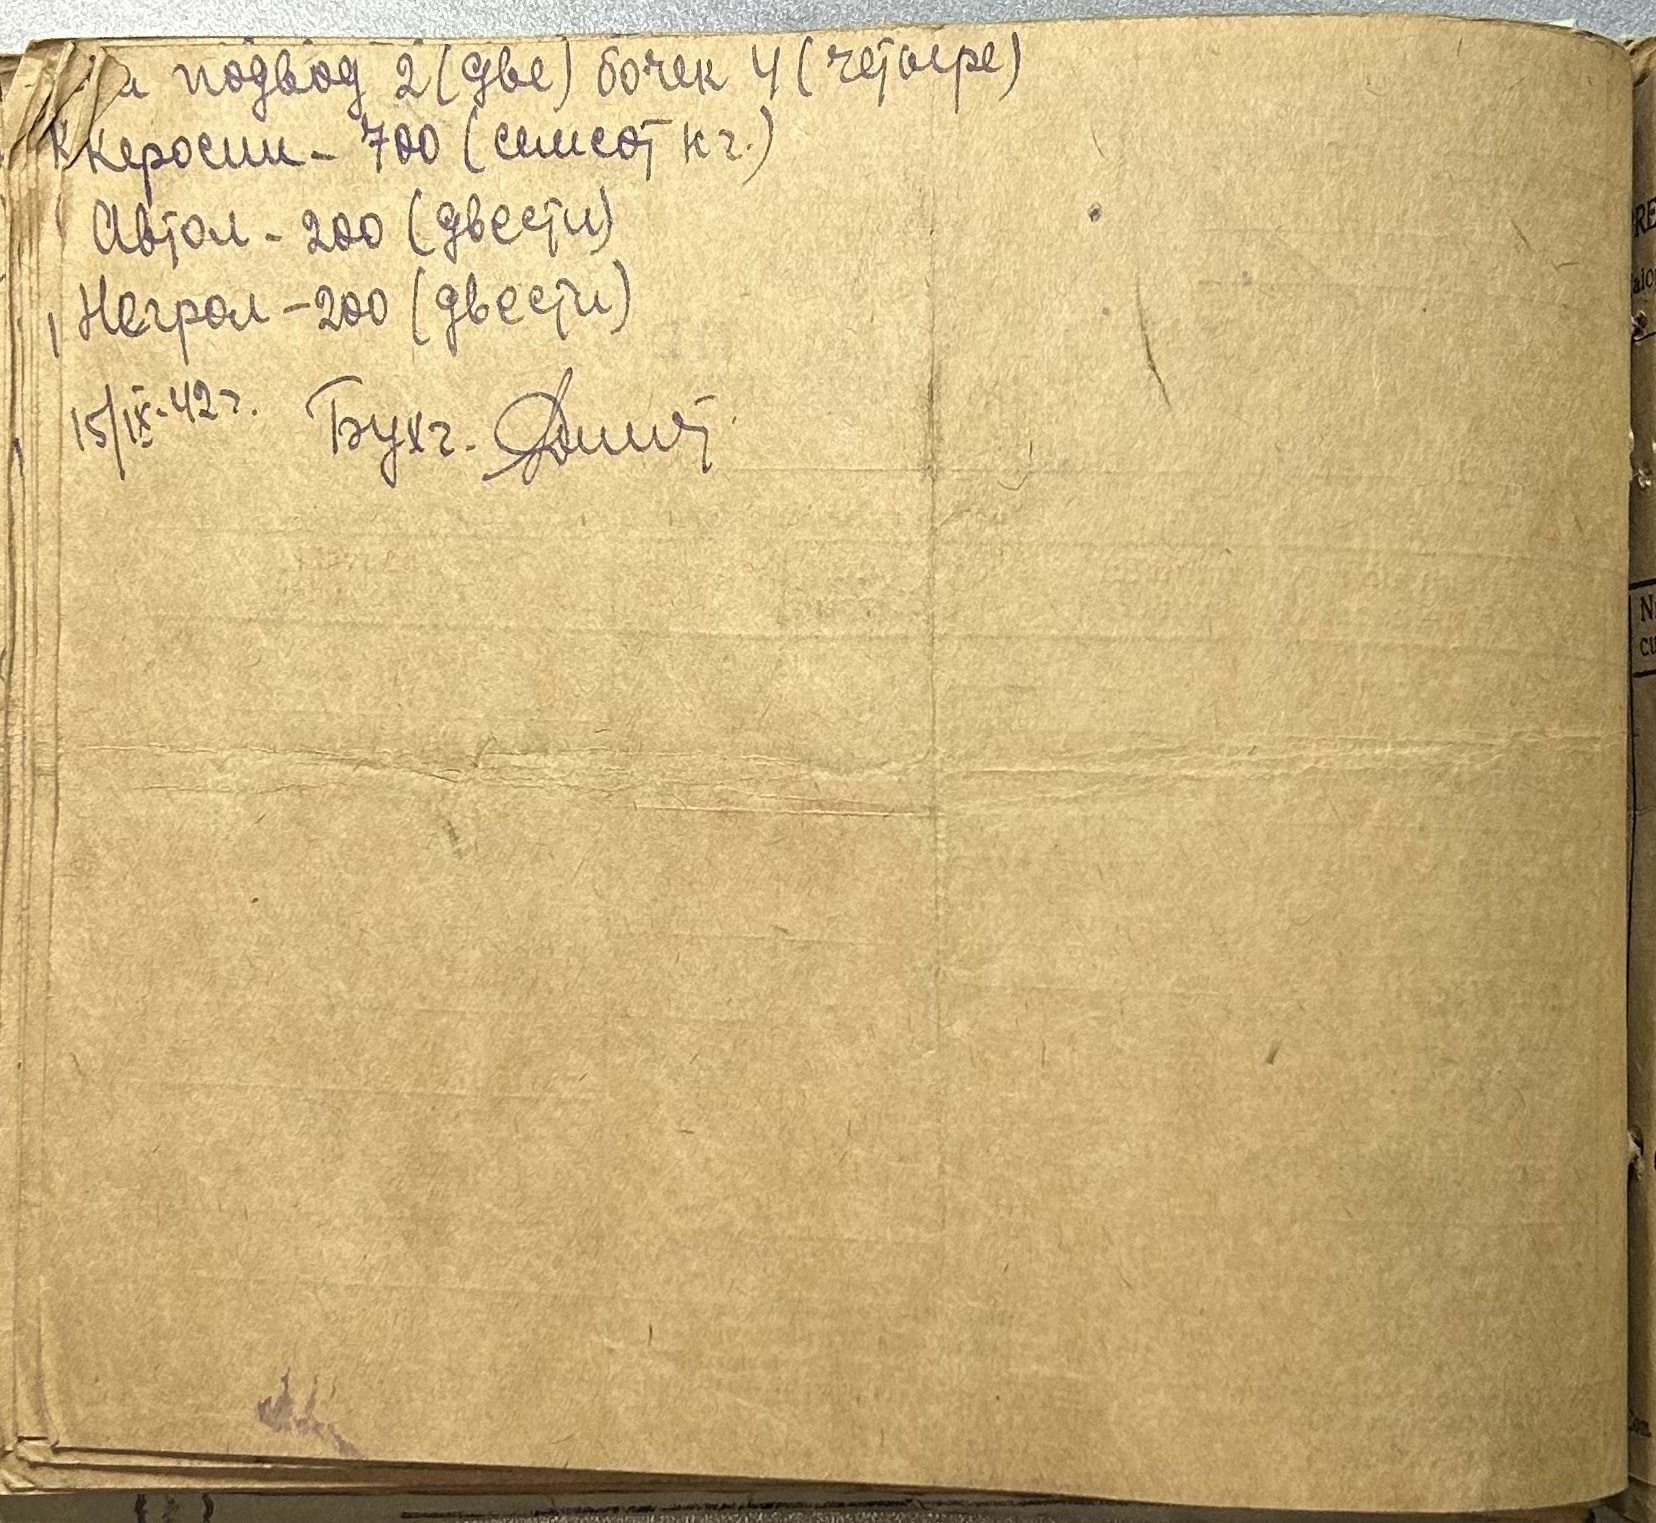 подвод 2 (две) бочек 4 (четыре)
Керосин - 700 (семсот кг.)
Автол - 200 (двести)
Нигрол - 200 (двести)
15/IX-42 г. Бухг.
RE
Nr
cu